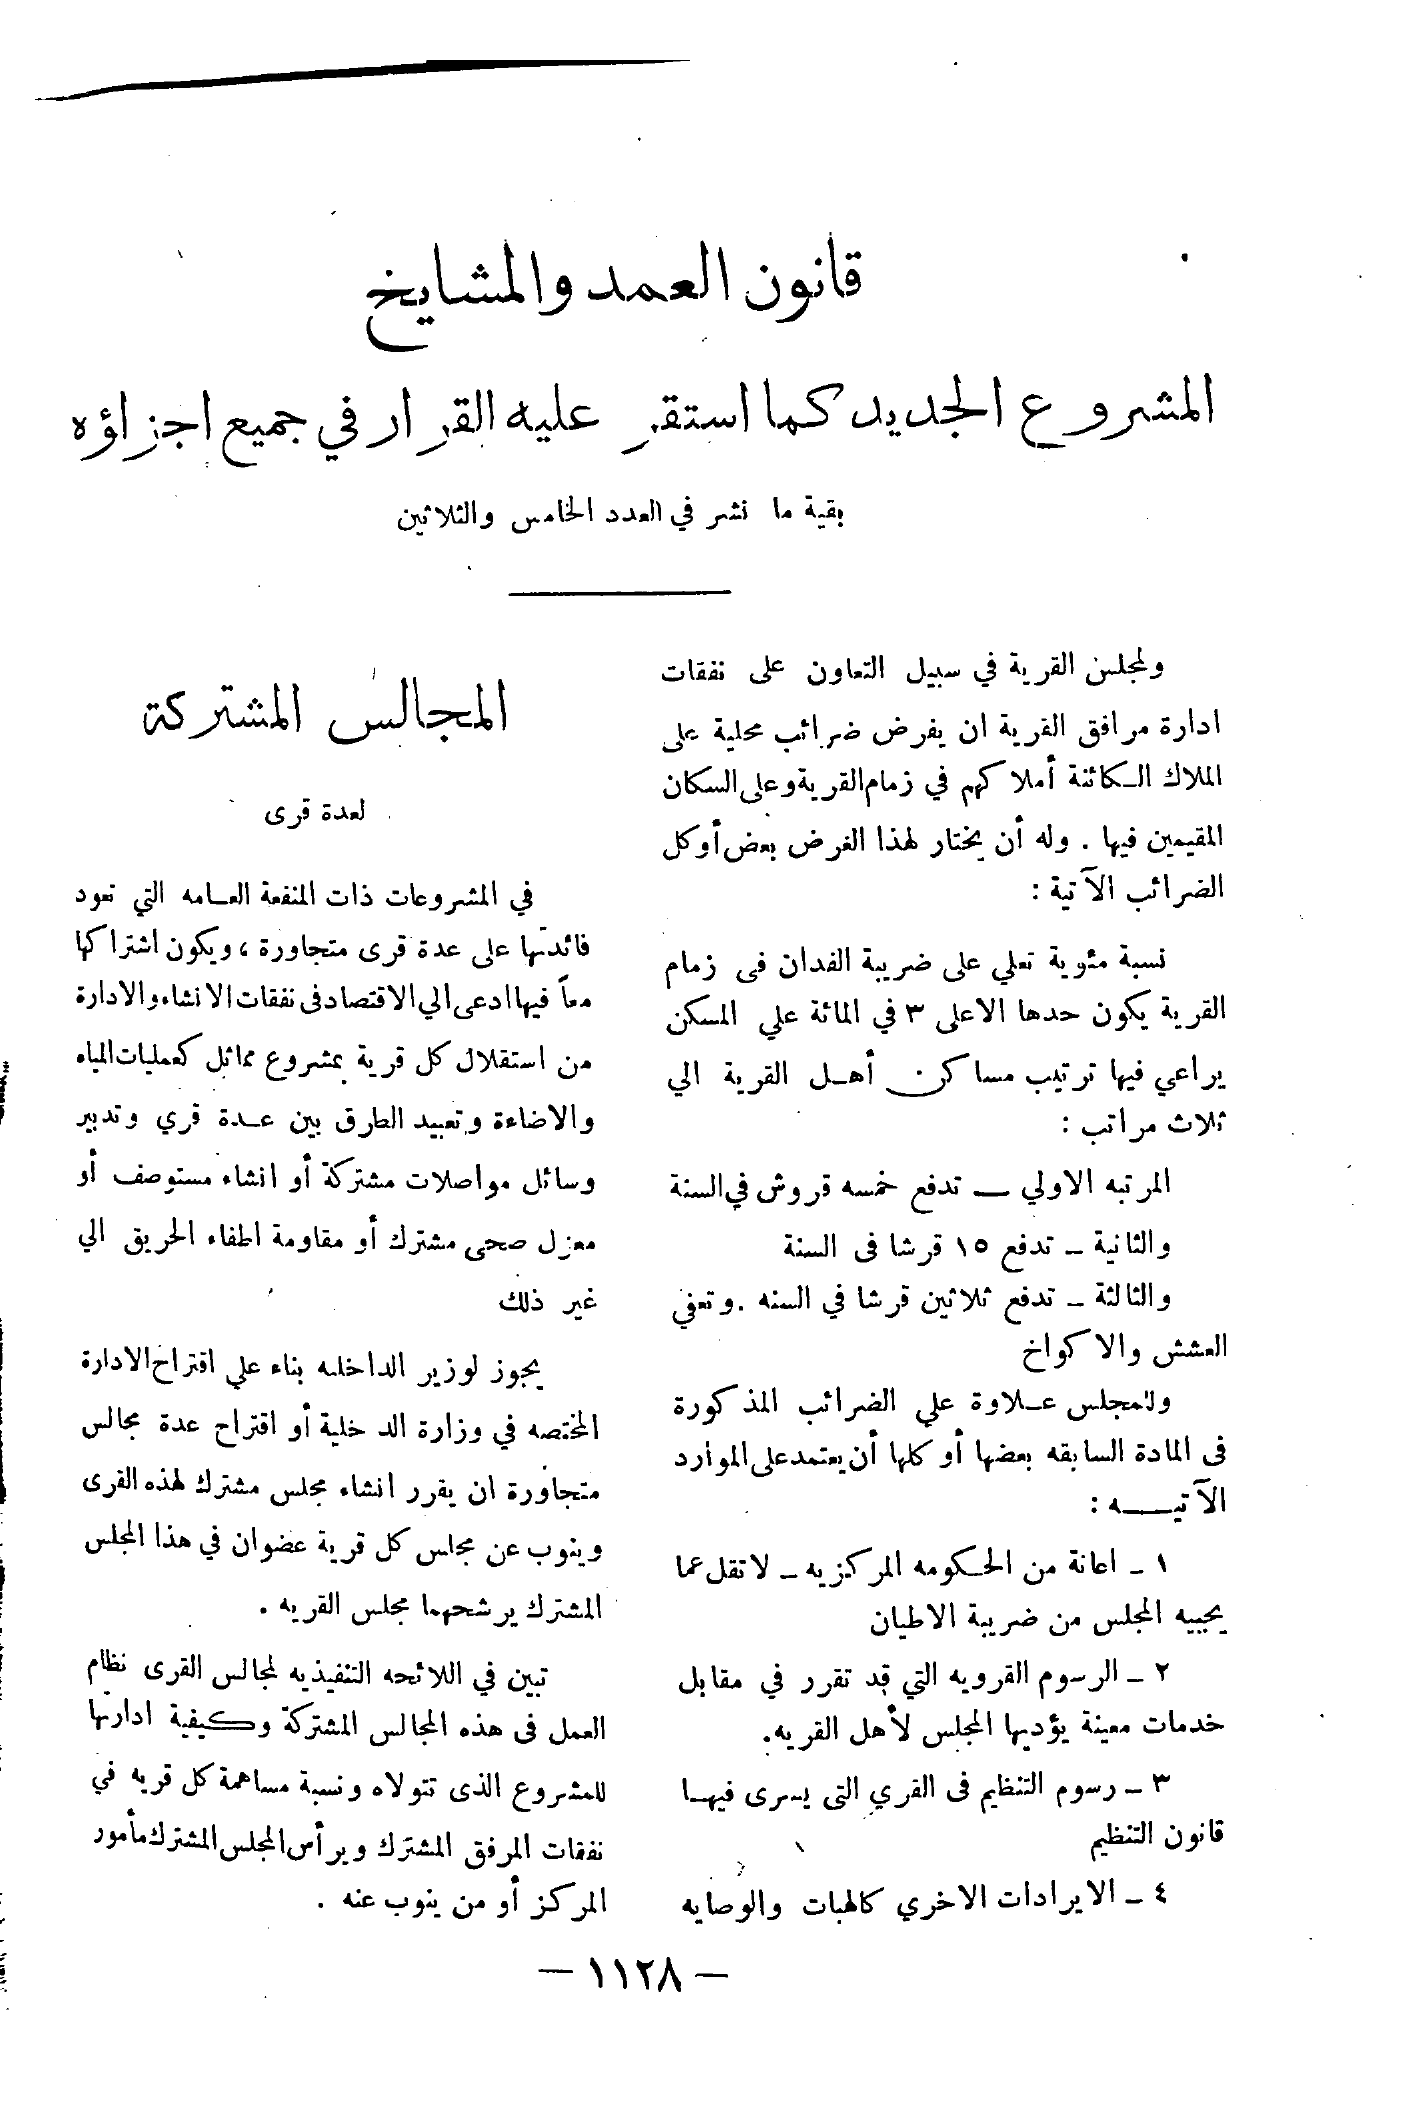 قانون العمد والمشايخ
المشروع الجديد كما استقر عليه القرار في جميع اجزاؤه
بقية ما نشر في العدد الخامس والثلاثين
ولمجلس القرية في سبيل التعاون على نفقات
ادارة مرافق القرية ان يفرض ضرائب محلية على
الملاك الكائنة أملاكهم في زمام القرية وعلى السكان
المقيمين فيها . وله أن يختار لهذا الغرض بعض أو كل
الضرائب الآتية :
نسبة مئوية تعلي على ضريبة الفدان فى زمام
القرية يكون حدها الاعلى ٣ في المائة علي المسكن
يراعي فيها ترتيب مساكن أهل القرية الي
ثلاث مراتب :
المرتبه الاولي — تدفع خمسه قروش في السنة
والثانية - تدفع ١٥ قرشا فى السنة
والثالثة - تدفع ثلاثين قرشا في السنه . وتعفي
العشش والاكواخ
وللمجلس علاوة علي الضرائب المذكورة
فى المادة السابقه بعضها أو كلها أن يعتمد على الموارد
الآتيه :
١ - اعانة من الحكومه المركزيه - لا تقل عما
يجبيه المجلس من ضريبة الاطيان
٢ - الرسوم القرويه التي قد تقرر في مقابل
خدمات معينة يؤديها المجلس لأهل القريه.
٣ - رسوم التنظيم فى القري التى يسرى فيها
قانون التنظيم
٤ - الايرادات الاخري كالهبات والوصايه
المجالس المشتركة
لعدة قرى
في المشروعات ذات المنفعة العامه التي تعود
فائدتها على عدة قرى متجاورة ، ويكون اشتراكها
معاً فيها ادعى الي الاقتصاد فى نفقات الانشاء والادارة
من استقلال كل قرية بمشروع مماثل كعمليات المياه
والاضاءة وتعبيد الطرق بين عدة قري وتدبير
وسائل مواصلات مشتركة أو انشاء مستوصف أو
معزل صحى مشترك أو مقاومة اطفاء الحريق الي
غير ذلك
يجوز لوزير الداخليه بناء علي اقتراح الادارة
المختصه في وزارة الدخلية أو اقتراح عدة مجالس
متجاورة ان يقرر انشاء مجلس مشترك لهذه القرى
وينوب عن مجلس كل قرية عضوان في هذا المجلس
المشترك يرشحهما مجلس القريه .
تبين في اللائحه التنفيذيه لمجالس القرى نظام
العمل فى هذه المجالس المشتركة وكيفية ادارتها
للمشروع الذى تتولاه ونسبة مساهمة كل قريه في
نفقات المرفق المشترك ويرأس المجلس المشترك مأمور
المركز أو من ينوب عنه .
— ١١٢٨ —